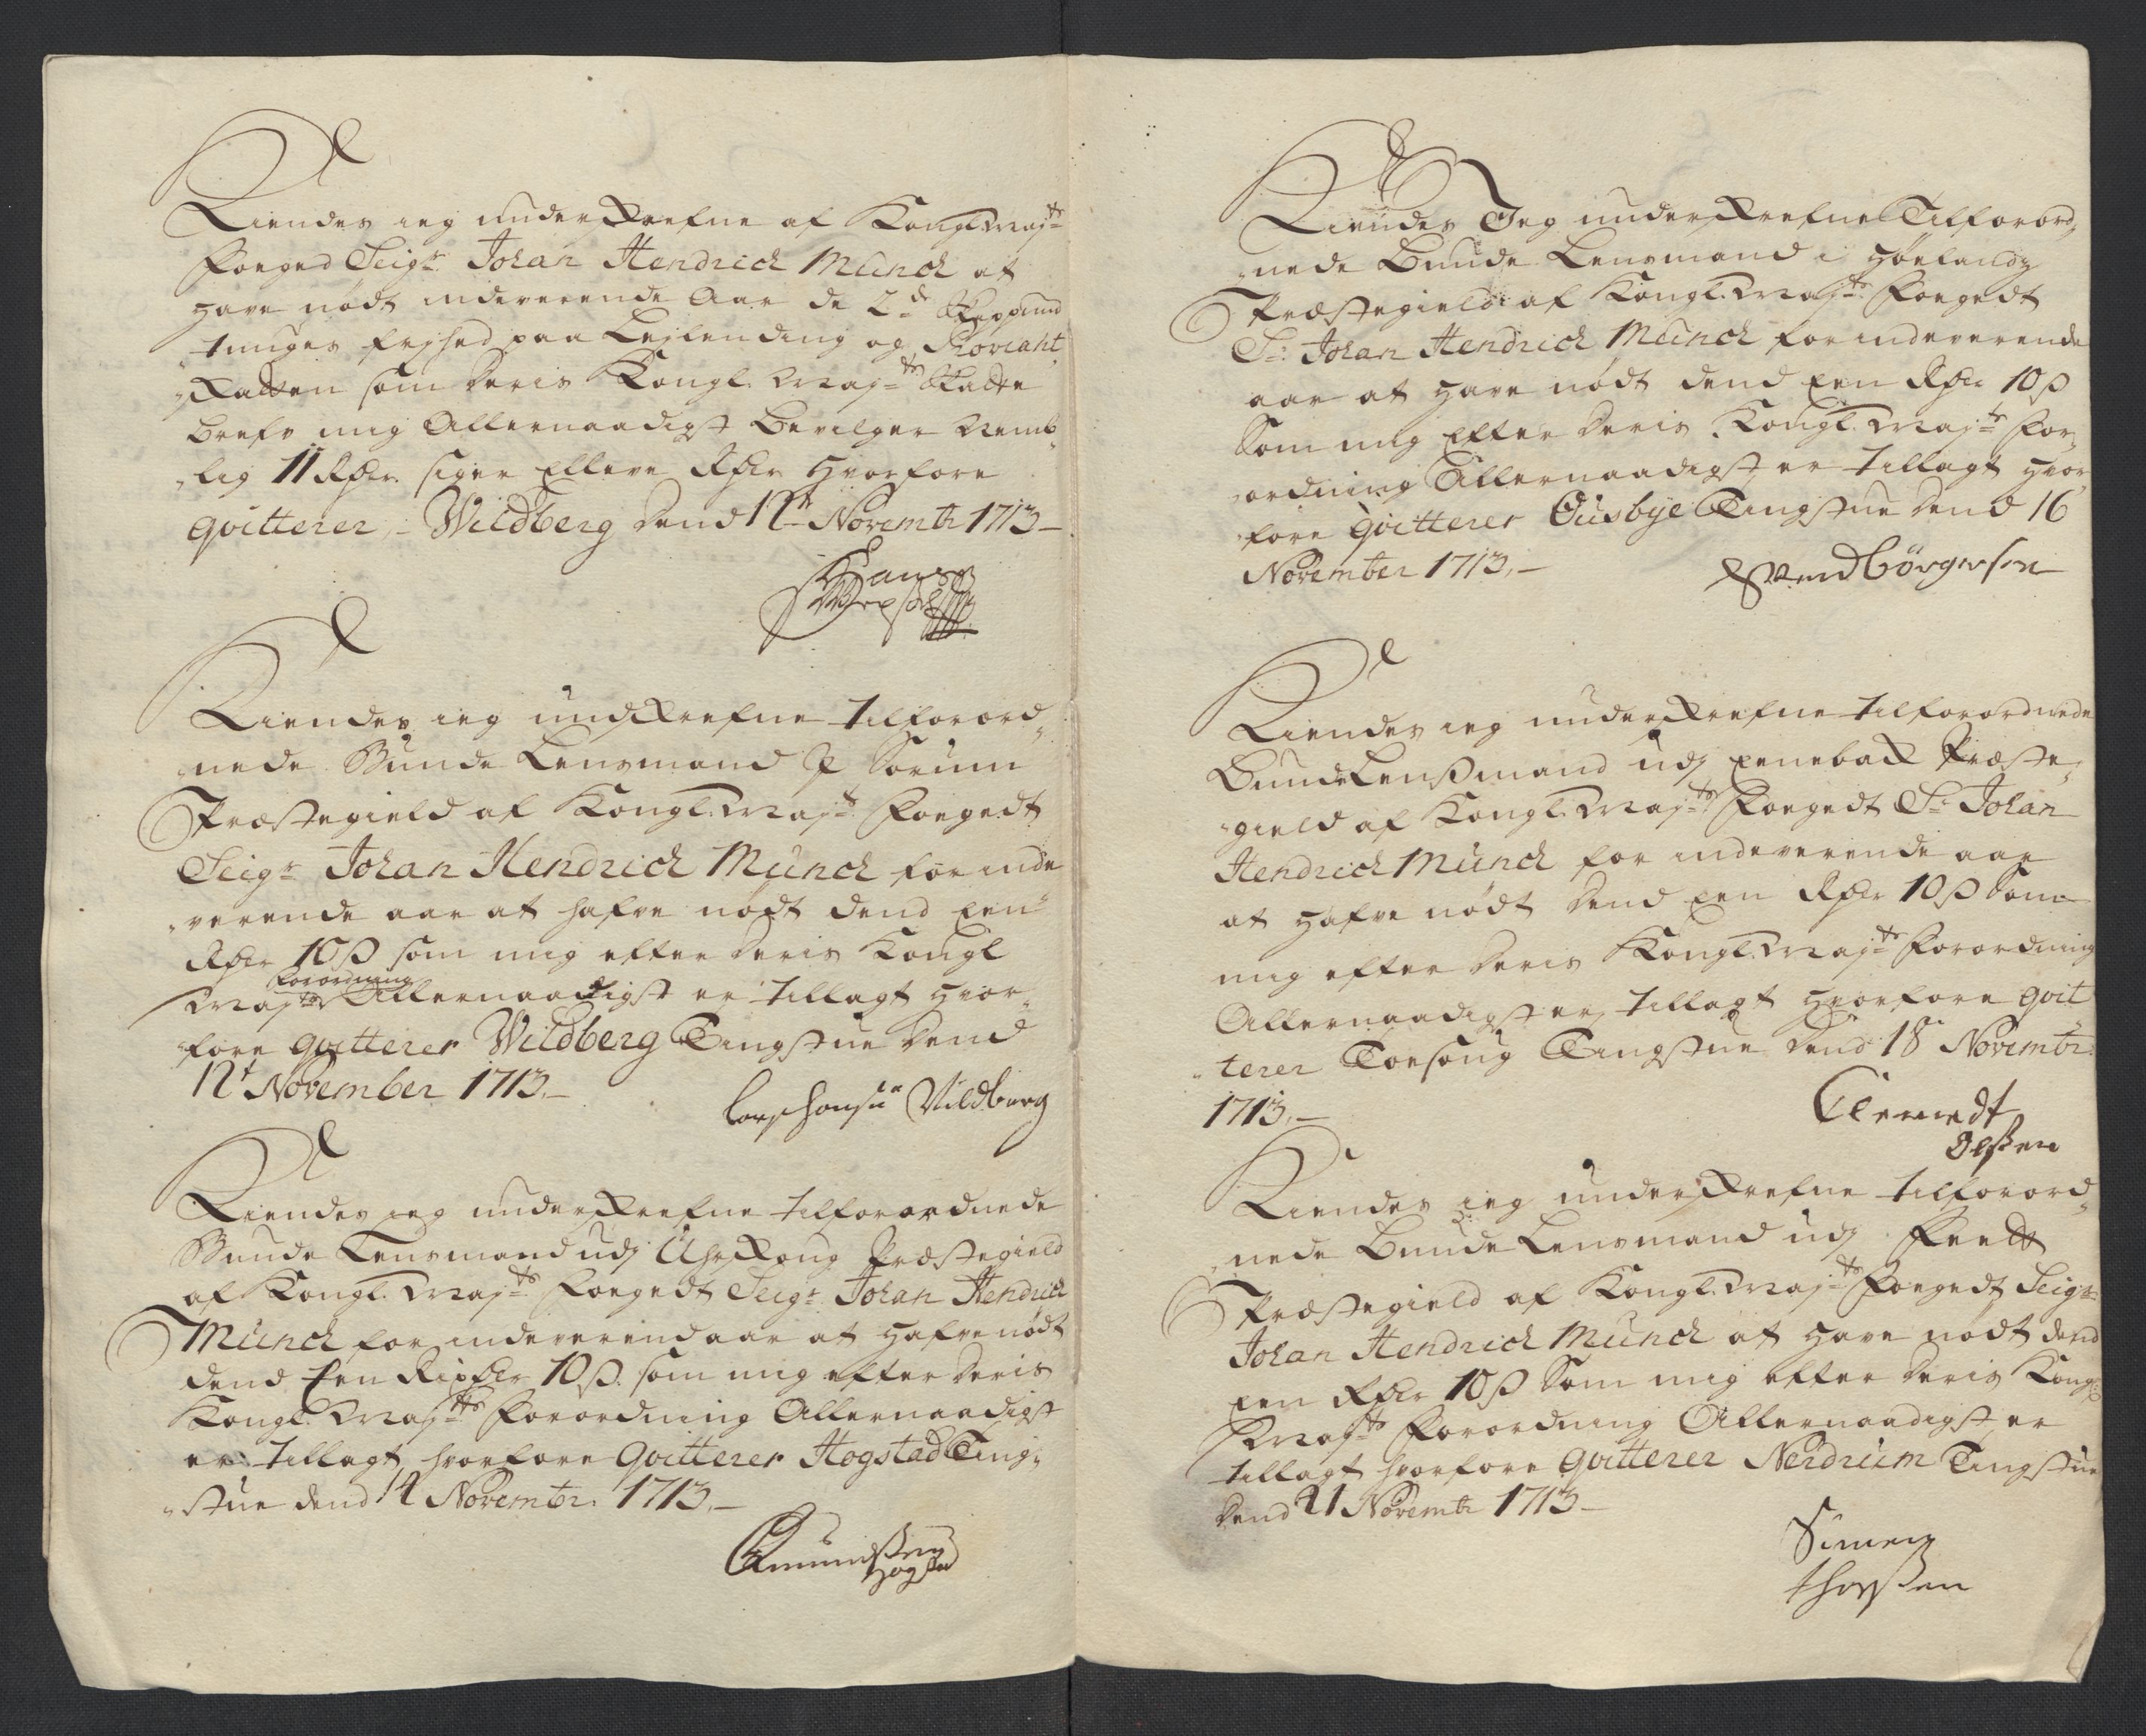 Kiendes ieg underskrefne af Kongl: Maj:ts
Foeged Seigr: Johan Hendrich Münch at
have nødt indeverende Aar de 2de Skippund
tunges frjhed paa Lejlending og Proviant
skatten som deris Kongl. Maj:ts Skatte
brefv mig Allernaadigst bevilger nemb„
„lig 11 Rdlr. siger Elleve Rdlr hvorfore
qvitterer, – Wildberg dend 12t Novembr 1713 –
Hans
Kiendes ieg undskrefne tilforord„
„nede Bunde Lensmand J Sørum
Præstegield af Kongl: Maj:ts Foegedt
Seigr Johan Hendrich Münch for inde
„verende aar at hafve nødt dend Een
Rdlr 10 ß som mig efter deris Kongl
Forordning
Maj:ts Allernaadigst er tillagt hvor„
„fore qvitterer Wildberg Tingstue dend
12t November 1713. –
Lars Hansøn Vildberg
Kiendes ieg underskrefne tilforordnede
Bunde Lensmand udj Uhrskoug Præstegield
af Kongl. Maj:ts Foegedt Seigr Johan Hendrich
Münch for indeverend aar at hafve nødt
dend Een Rixdlr 10 ß. som mig efter deris
Kongl: Maj:ts Forordning Allernaadigst
er tillagt, hvorfore Qvitterer Hogstad Ting„
„stue dend 14 Novembr. 1713. –
Amundsen
Hogstad
Kiendes Jeg underskrefne Tilforord„
„nede Bunde Lensmand i Høelands
Præstegield af Kongl: Maj:ts Foegedt
Sr: Johan Hendrich Münch for indeverende
aar at have nødt dend Een Rdlr 10 ß
Som mig Efter deris Kongl. Maj:ts For„
„ordning Allernaadigst er tillagt hvor
„fore qvitterer Ousbye Tingstue dend 16
November 1713, –
Svend Børgersen
Kiendes ieg underskrefne tilforordnede
Bunde Lensmand udj Eenebak Præste„
„gield af Kongl. Maj:ts Foegedt Sr Johan
Hendrich Münch for indeverende aar
at hafve nødt dend Een Rdlr 10 ß Som
mig efter deris Kongl: Maj:ts Forordning
Allernaadigst er tillagt hvorfore qvit
„terer Toesoug Tingstue dend 18 Novembr.
1713, –
Clemedt
Olssen
Kiendes ieg underskrefne tilforord„
„nede Bunde Lensmand udj Feedt
Præstegield af Kongl: Maj:ts Foegedt Seigr
Johan Hendrich Münch at have nødt dend
Een Rdlr 10 ß Som mig efter deris Kongl:
Maj:ts Forordning Allernaadigst er
tillagt hvorfore qvitterer Nerdrum Tingstue
dend 21 Novembr 1713 –
Simen
Thorssen